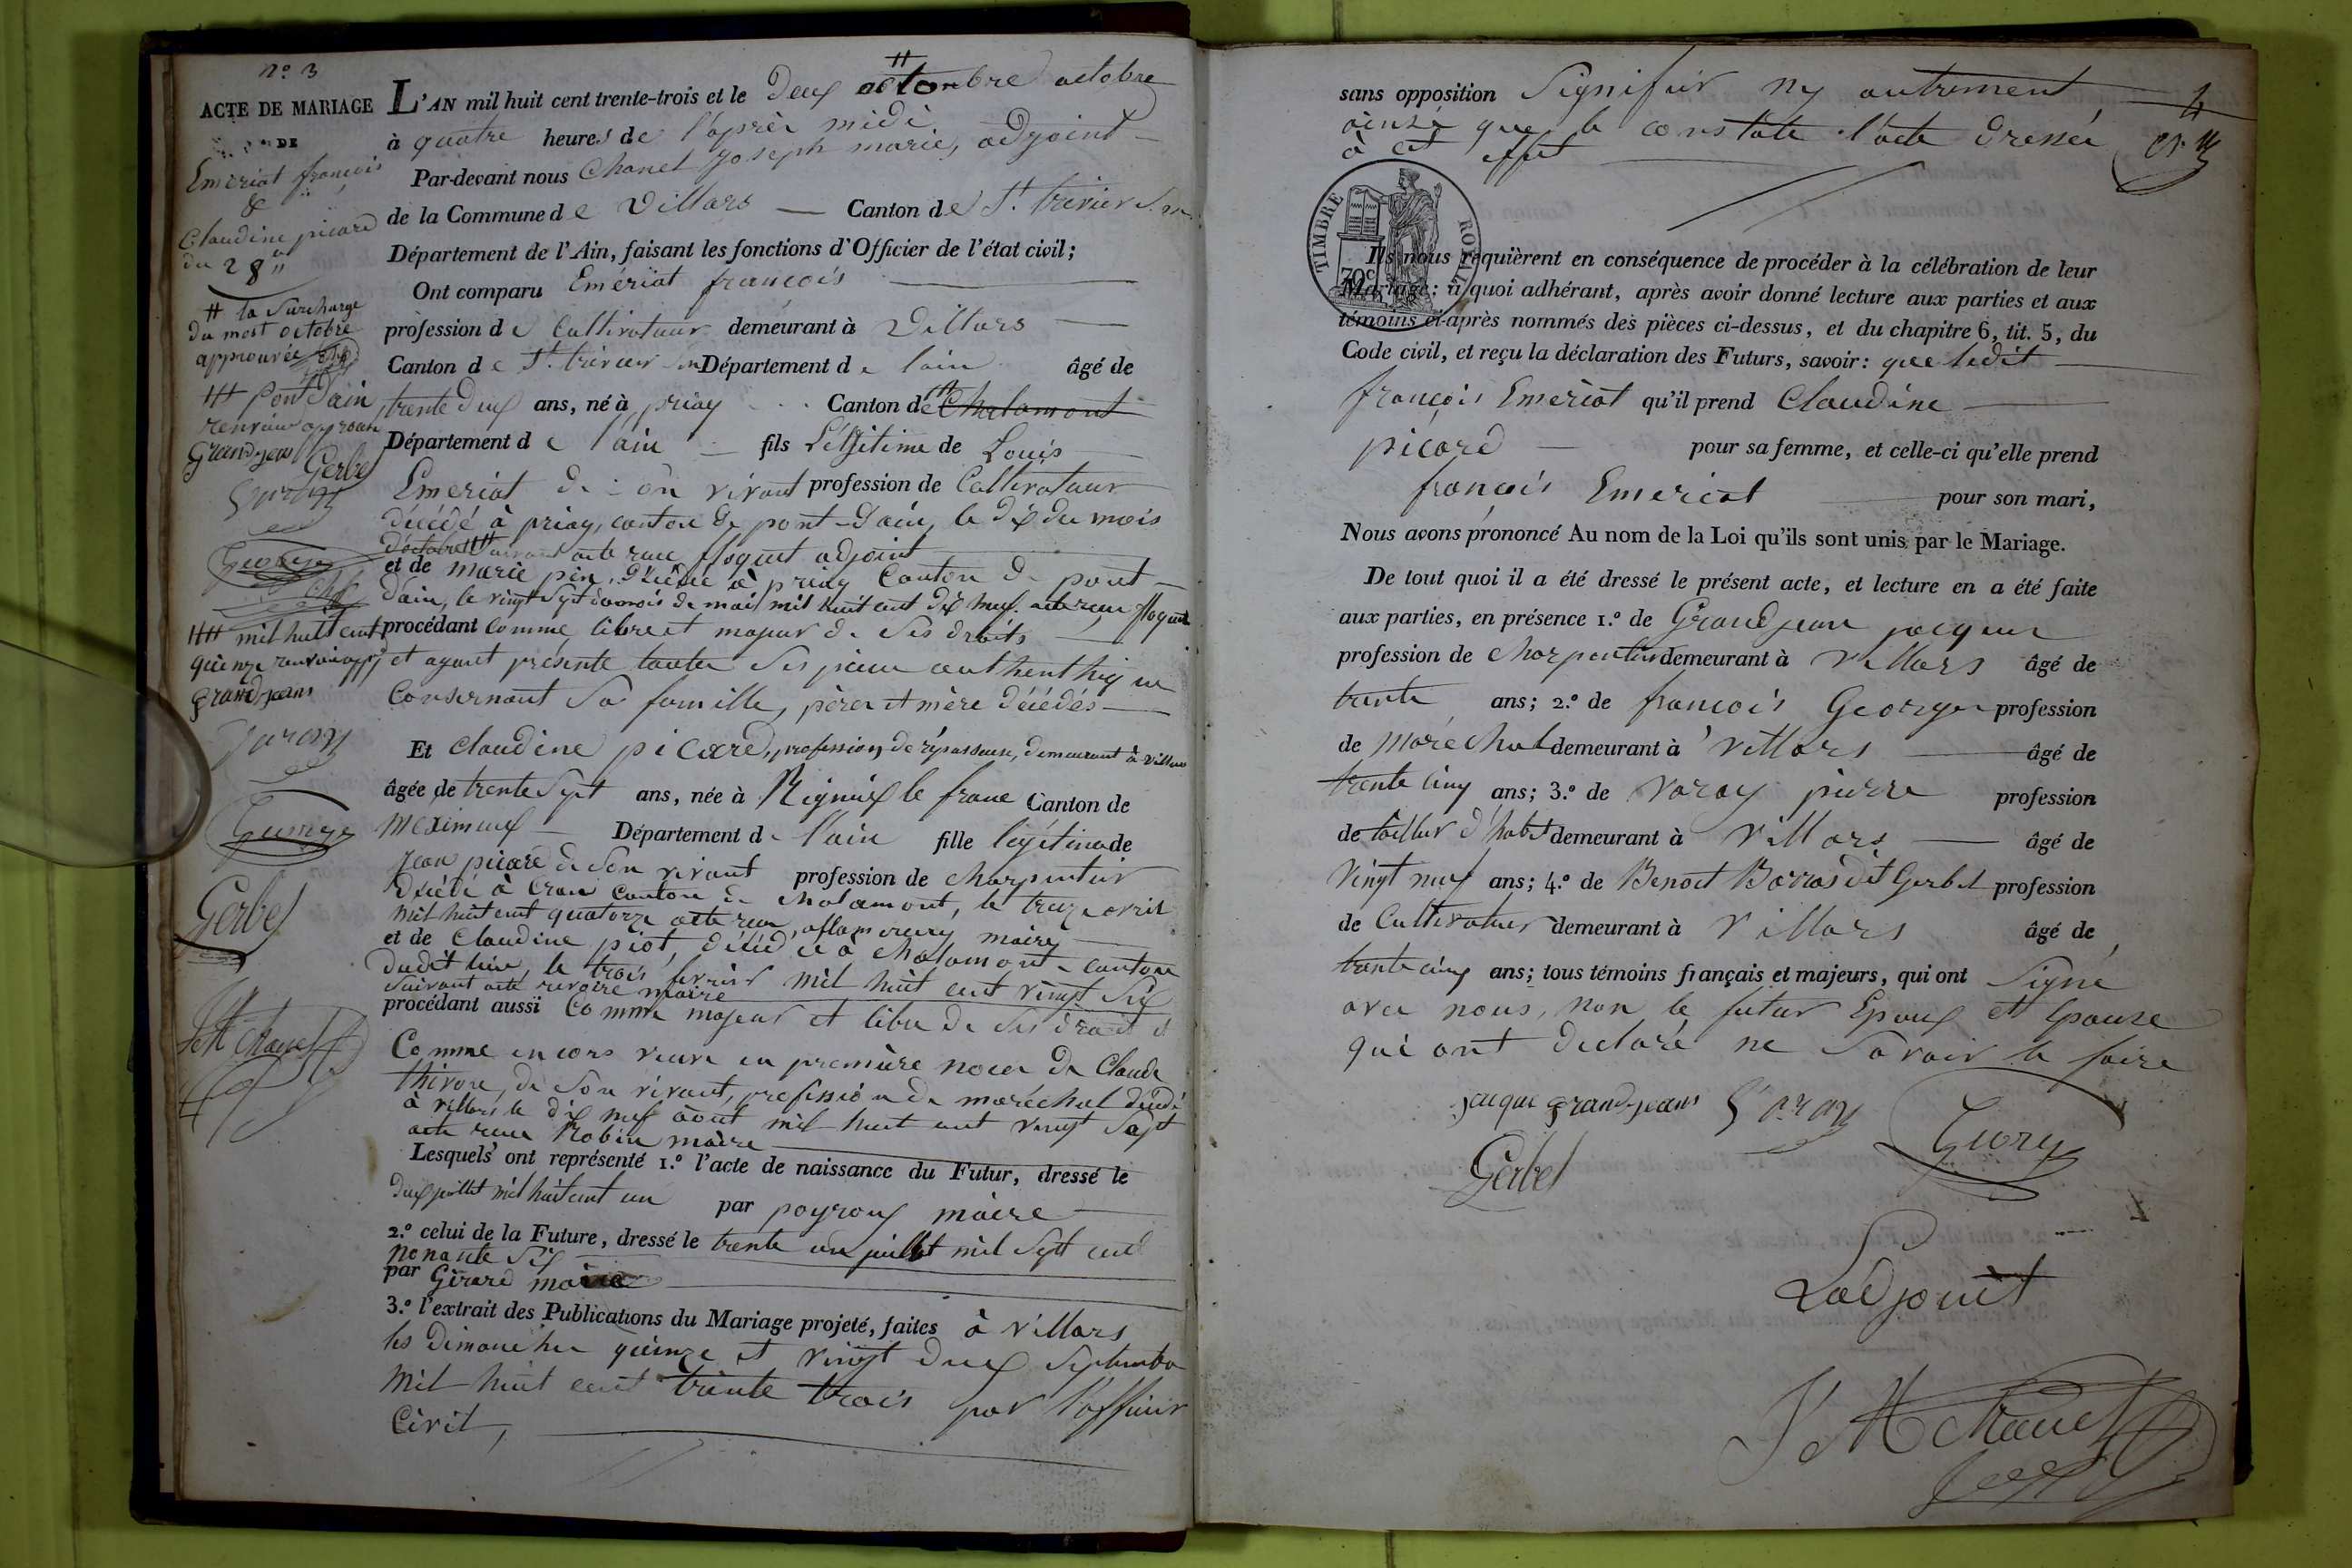 n.o 3
ACTE DE MARIAGE
DE
Emeriat françois
&
Claudine picard
du 28
# la Surcharge
du most octobre
approuvée
### pont Dain
renvoi approuvé
Grandjean Gerbel
George
#### mil huit cent
quinze renvoi app
grandjeans
George
Gerbel
JM Chanel
L'AN mil huit cent trente-trois et le Deux octombre octobre
à quatre heures de l'après midi
Par-devant nous Chanel Joseph marie, adjoint
de la Commune de Villars Canton de St. trivier
Département de l'Ain, faisant les fonctions d'Officier de l'état civil;
Ont comparu Emériat françois
profession de Cultivateur demeurant à Villars
Canton de St. trivier Département de lain âgé de
trente deux ans, né à priay Canton de Chalamont
Département de l'ain fils Légitime de Louis
Emeriat de son vivant profession de Cultivateur
décédé à priay, canton de pont-Dain, le dix du mois
d'octobre #### suivant acte reçu floquet adjoint
et de marie pin, décédée à priay Canton de pont
Dain, le vingt Sept du mois de mai mil huit cent dix neuf. acte reçu floquet
procédant comme libre et majeur de Ses droits
et ayant présenté toutes Ses pièces authenthique
Consernant Sa famille, père et mère décédés
Et Claudine picard, profession de repasseuse, demeurant à Villars
âgée de trente Sept ans, née à Rignieux le franc Canton de
Meximieux Département de l'ain fille légitime de
Jean picard de Son vivant profession de charpentier
décédé à Cran Canton de chalamont, le treize avril
mil huit cent quatorze acte reçu, maire
et de Claudine piot, décédée à chalamont canton
dudit lieu, le trois fevrier mil huit cent vingt Six
Suivant acte maire
procédant aussi Comme majeur et libre de Ses droits et
Comme encore veuve en première noces de Claude
thivore, de Son vivant, profession de maréchal décédé
à villars le dix neuf août mil huit cent vingt Sept
acte reçu Robin maire
Lesquels ont représenté 1.º l'acte de naissance du Futur, dressé le
deux juillet mil huit cent un par poyroux maire
2.º celui de la Future, dressé le trente un juillet mil Sept cent
nonante Six
par Girard maire
3.º l'extrait des Publications du Mariage projeté, faites à Villars
les Dimanches quinze et vingt deux Septembre
mil huit cent trente trois par l'officier
Civil,
4
sans opposition Signifier ny autrement
ainsi que le constate l'acte dressée
à cet effet
TIMBRE ROYAL
70c
Ils nous requièrent en conséquence de procéder à la célébration de leur
Mariage: à quoi adhérant, après avoir donné lecture aux parties et aux
témoins ci-après nommés des pièces ci-dessus, et du chapitre 6, tit. 5, du
Code civil, et reçu la déclaration des Futurs, savoir: que ledit
françois Emeriat qu'il prend Claudine
picard pour sa femme, et celle-ci qu'elle prend
françois Emeriat pour son mari,
Nous avons prononcé Au nom de la Loi qu'ils sont unis par le Mariage.
De tout quoi il a été dressé le présent acte, et lecture en a été faite
aux parties, en présence 1.º de Grandjean jacques
profession de charpentier demeurant à Villars âgé de
trente ans; 2.º de françois George profession
de maréchal demeurant à Villars âgé de
trente cinq ans; 3.º de Varay pierre profession
de tailleur d'habit demeurant à Villars âgé de
vingt neuf ans; 4.º de Benoit Barras dit Gerbel profession
de Cultivateur demeurant à Villars âgé de
trente cinq ans; tous témoins français et majeurs, qui ont Signé
avec nous, non le futur Epoux et Epouse
qui ont déclaré ne Savoir le faire
jacque grandjeans Varay George
Gerbel
Ladjouit
J M Chanel